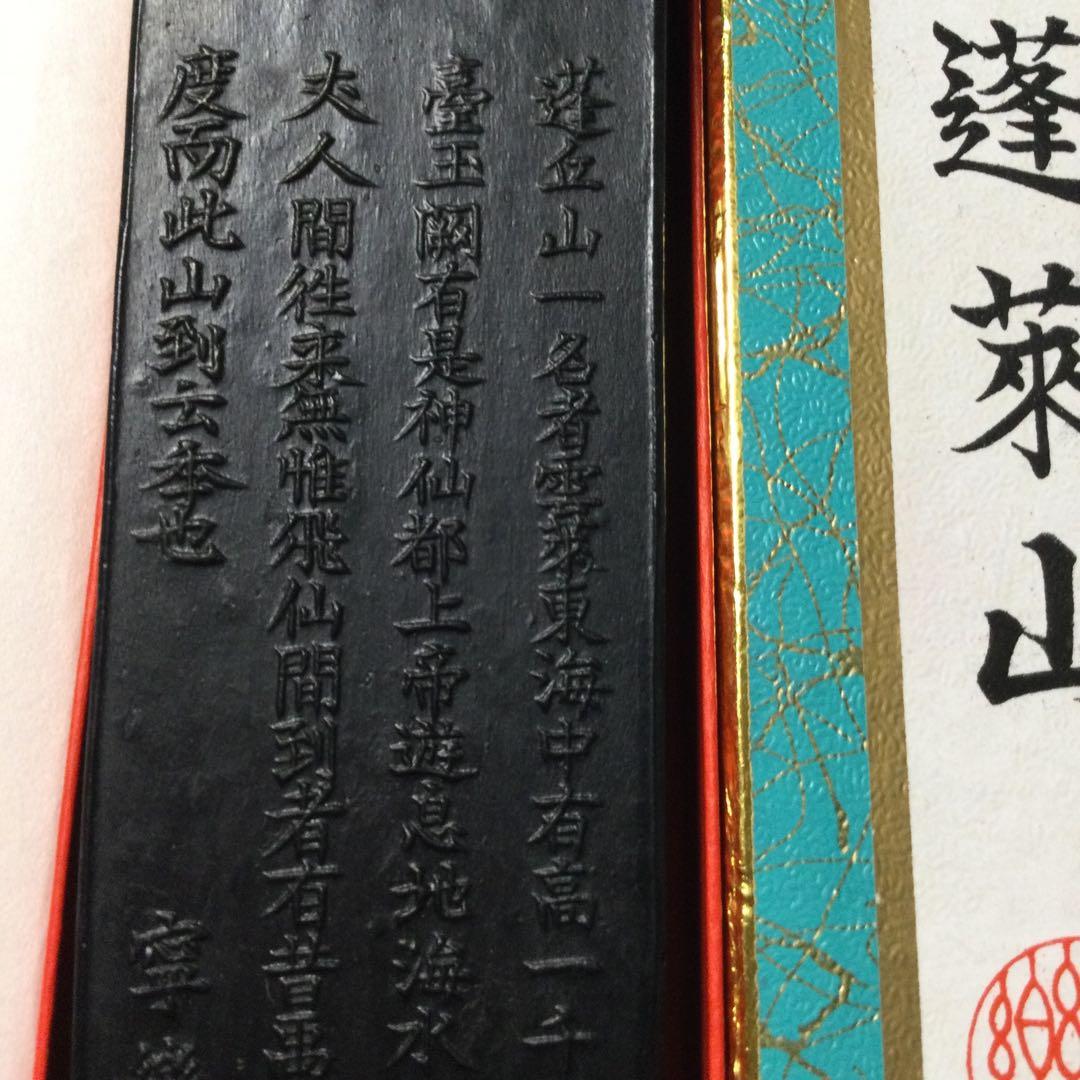 蓬萊山
蓬丘山一名者雲萊東海中有高一千
臺玉闕有是神仙都上帝遊息地海水
夫人間徃来無惟飛仙間到者有昔禹
度而此山到云季也
寧